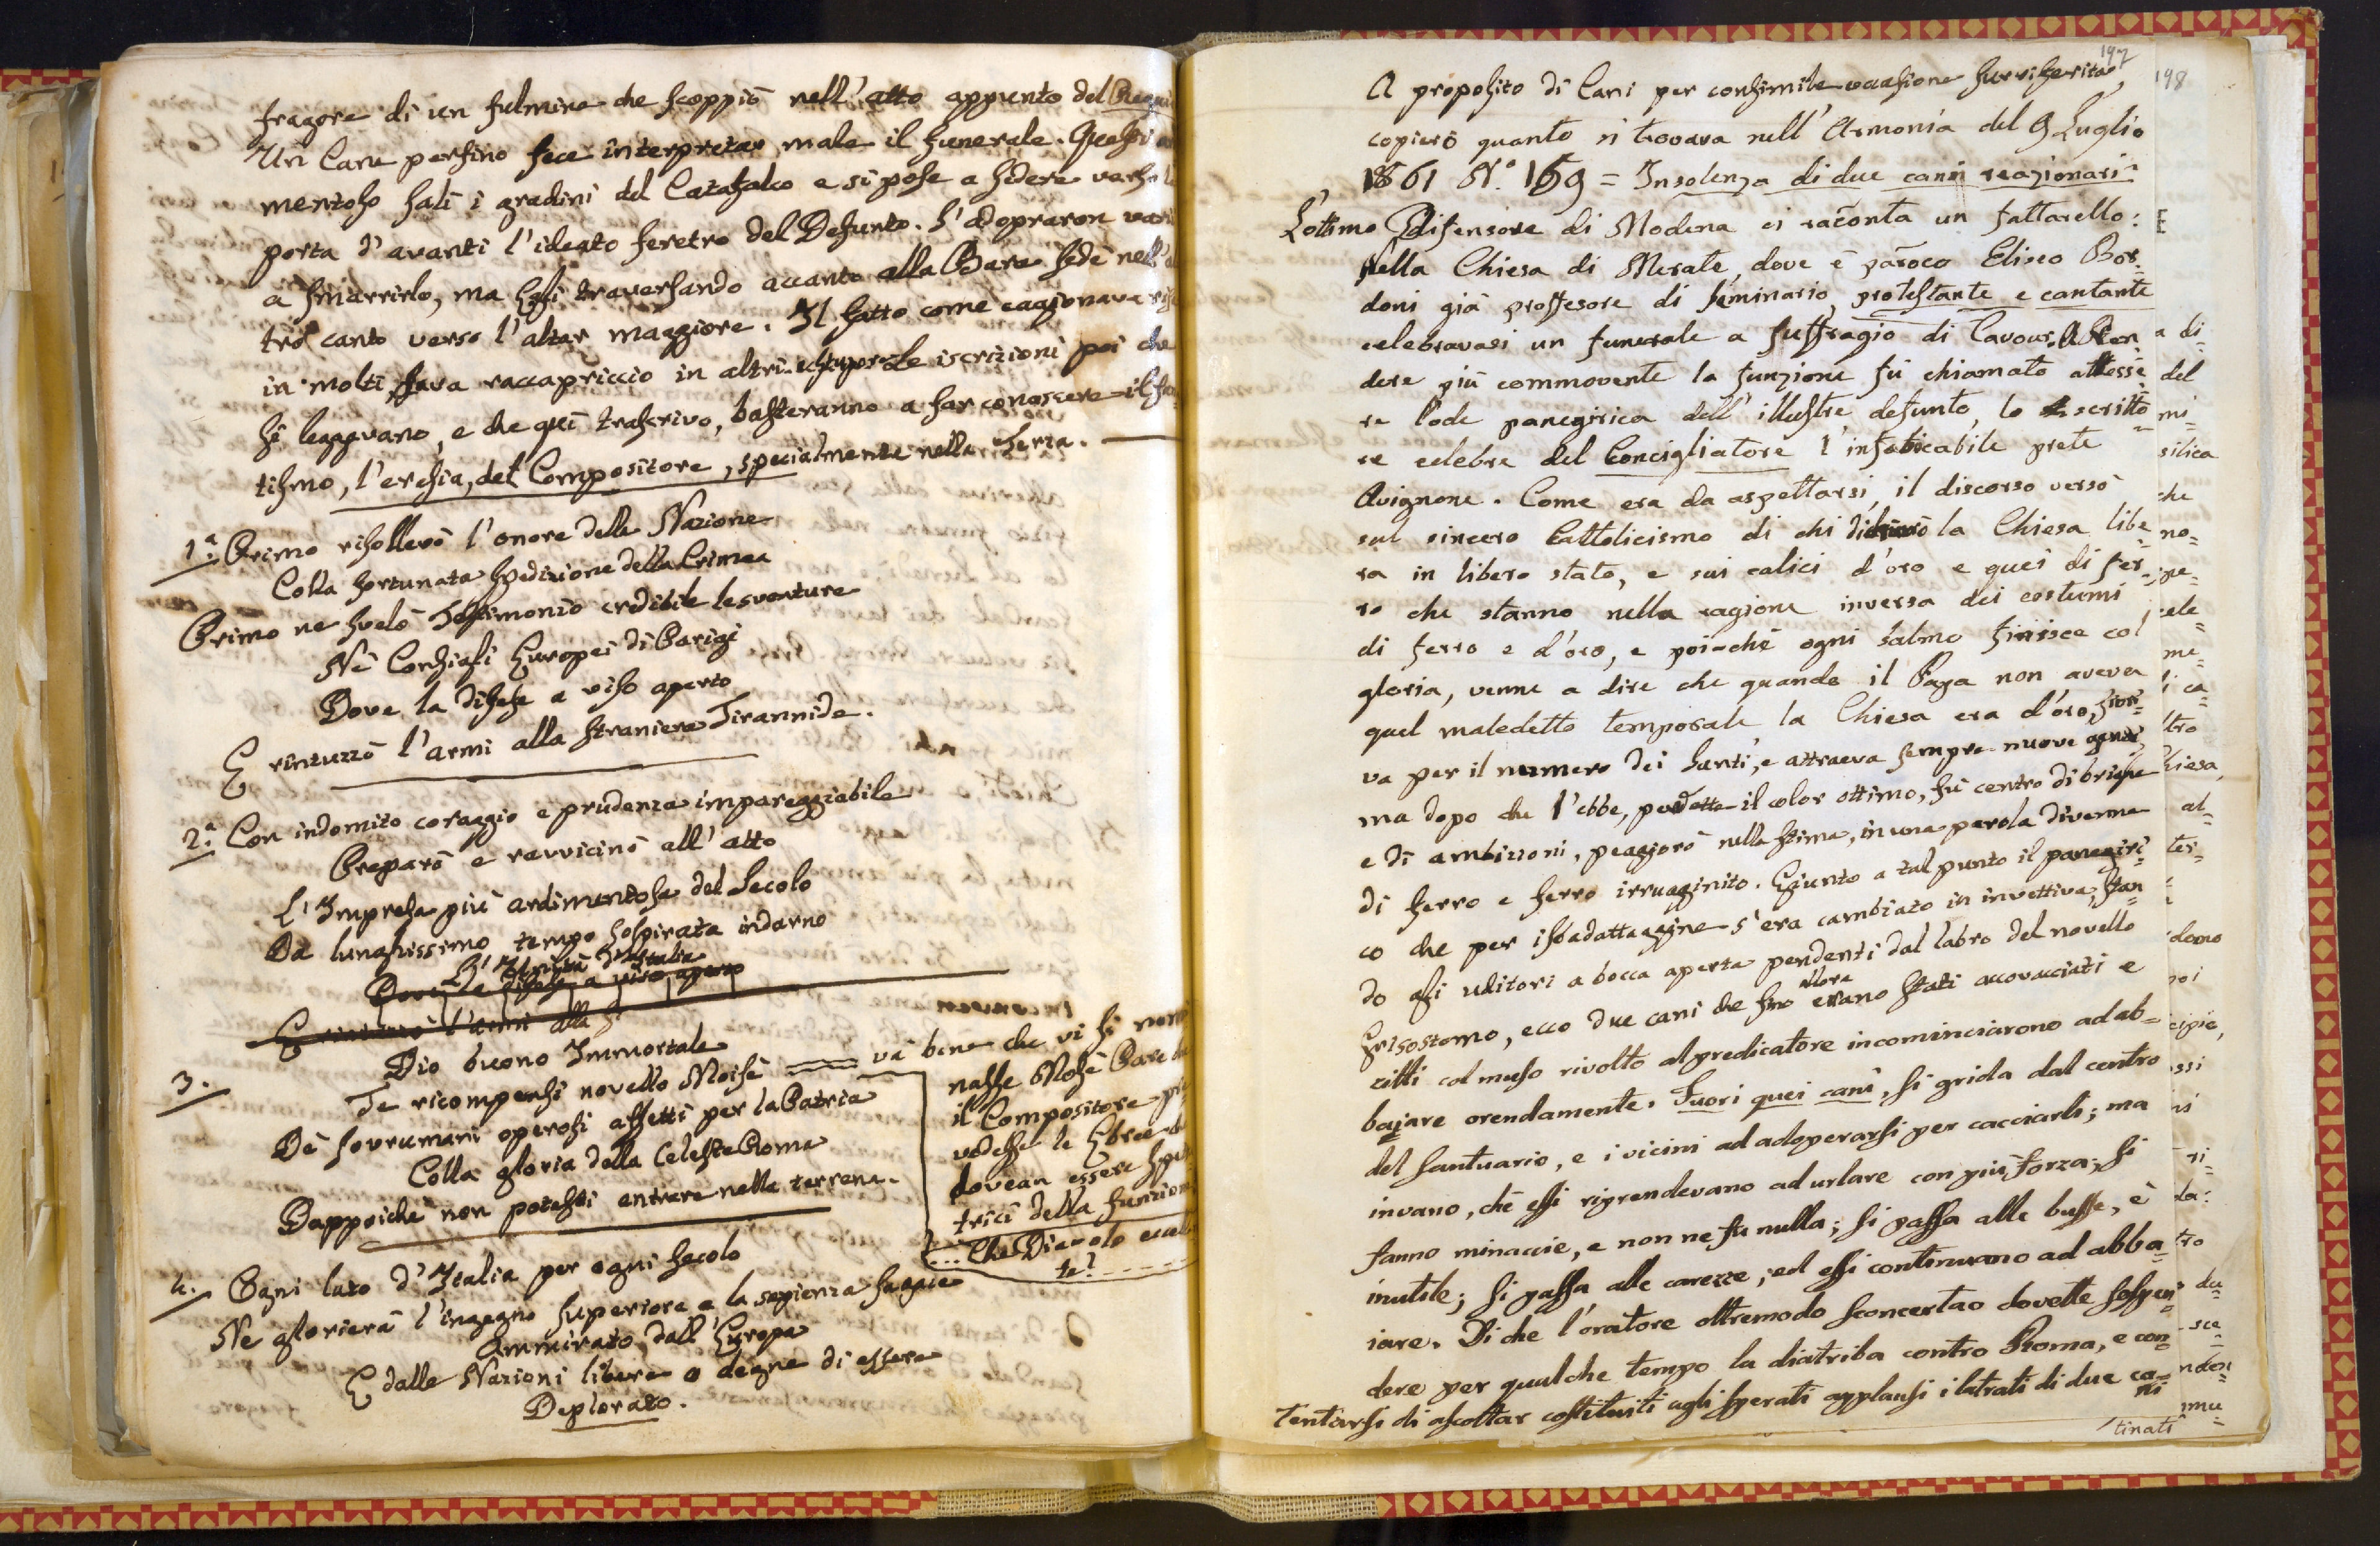 fragore di un fulmine che scoppiò nell'atto appunto del
Un Cane persino fece interpretar male il funerale. Questi
mentoso salì i gradini del Catafalco e si pose a sedere verso la
porta d'avanti l'ideato feretro del Defunto. S'adopraron vari
a smarrirlo, ma Egli traversando accanto alla Bara sedè nell'al
tro canto verso l'altar maggiore. Il fatto come cagionava
in molti, dava raccapriccio in altri. le iscrizioni poi che
si leggevano, e che quì trascrivo, basteranno a far conoscere il fa
tismo, l'eresia, del Compositore, specialmente nella terza.
1.ª Primo risollevò l'onore della Nazione
Colla fortunata spedizione della Crimea
Primo ne svelò Testimonio credibile le sventure
Nè Consiglj Europei di Parigi
Dove la difese a viso aperto
E rintuzzò l'armi alla straniera Tirannide.
2.ª Con indomito coraggio e prudenza impareggiabile
Preparò e ravvicinò all'atto
L'Impresa più ardimentosa del Secolo
Da lunghissimo tempo sospirata indarno
L'Unità d'Italia
Dove la difese a viso aperto
E rintuzzò l'armi alla st
3. Dio buono Immortale
Te ricompensi novello Moisè
De sovrumani operosi affetti per la Patria
Colla gloria della Celeste Roma
Dappoichè non potesti entrare nella terrena.
và bene che vi si nomi
nasse Mosè Pare che
il Compositore pre
vedesse le Ebree che
dovean essere spet
trici della funzione
... Che Diavolo
te?
4. Ogni luto d'Italia per ogni secolo
Ne glorierà l'ingegno superiore e la sapienza sagace
Ammirato dall'Europa
E dalle Nazioni libere o degne di essere
Deplorato.
197
198
A proposito di Cani per consimile occasione surriferita,
copierò quanto si trovava nell'Armonia del 9 Luglio
1861 N.º 159 = Insolenza di due cani reazionari
L'ottimo Difensore di Modena ci raconta un fattarello:
Nella Chiesa di Merate, dove è paroco Eliseo Bor=
doni già proffesore di seminario, protestante e cantante
celebravasi un funerale a suffragio di Cavour. A ren
dere più commovente la funzione fù chiamato attesse=
re l'ode panegirica dell'illustre defunto, lo scritto=
re celebre del Concigliatore l'infaticabile prete
Avignone. Come era da aspettarsi, il discorso versò
sul sincero Cattolicismo di chi dichiarò la Chiesa libe=
ra in libero stato, e sui calici d'oro e quei di fer=
ro che stanno nella ragione inversa dei costumi
di ferro e d'oro, e poi-chè ogni salmo finisce col
gloria, venne a dire che quando il Papa non aveva
quel maledetto temporale la Chiesa era d'oro, fiori=
va per il numero dei Santi, e attraeva sempre nuove genti,
ma dopo che l'ebbe, perdette il color ottimo, fù centro di brighe
e di ambizioni, peggiorò nella stima, in una parola divenne
di ferro e ferro irrugginito. Egiunto a tal punto il panegiri=
co che per isbadattaggine s'era cambiato in invettiva, stan
do gli uditori a bocca aperta pendenti dal labro del novello
Grisostomo, ecco due cani che fino allora erano stati accovacciati e
zitti col muso rivolto al predicatore incominciarono ad ab=
bajare orendamente. Fuori quei cani, si grida dal centro
del santuario, e i vicini ad adoperarsi per cacciarli; ma
invano, chè essi riprendevano ad urlare con più forza; si
fanno minaccie, e non ne fu nulla; si passa alle busse, è
inutile; si passa alle carezze, ed essi continuano ad abba=
iare. Di che l'oratore oltremodo sconcertao dovette sospen=
dere per qualche tempo la diatriba contro Roma, e con=
tentarsi di ascoltar costituiti agli sperati applausi i latrati di due ca=
ni
tinati
a di=
del
mi=
silica
che
no=
ne=
cele=
me=
di ca=
ltro
Chiesa,
al=
ter=
domo
poi
cipio,
ssi
ni
ri=
da:
tro
du=
sce=
ndo=
mu=